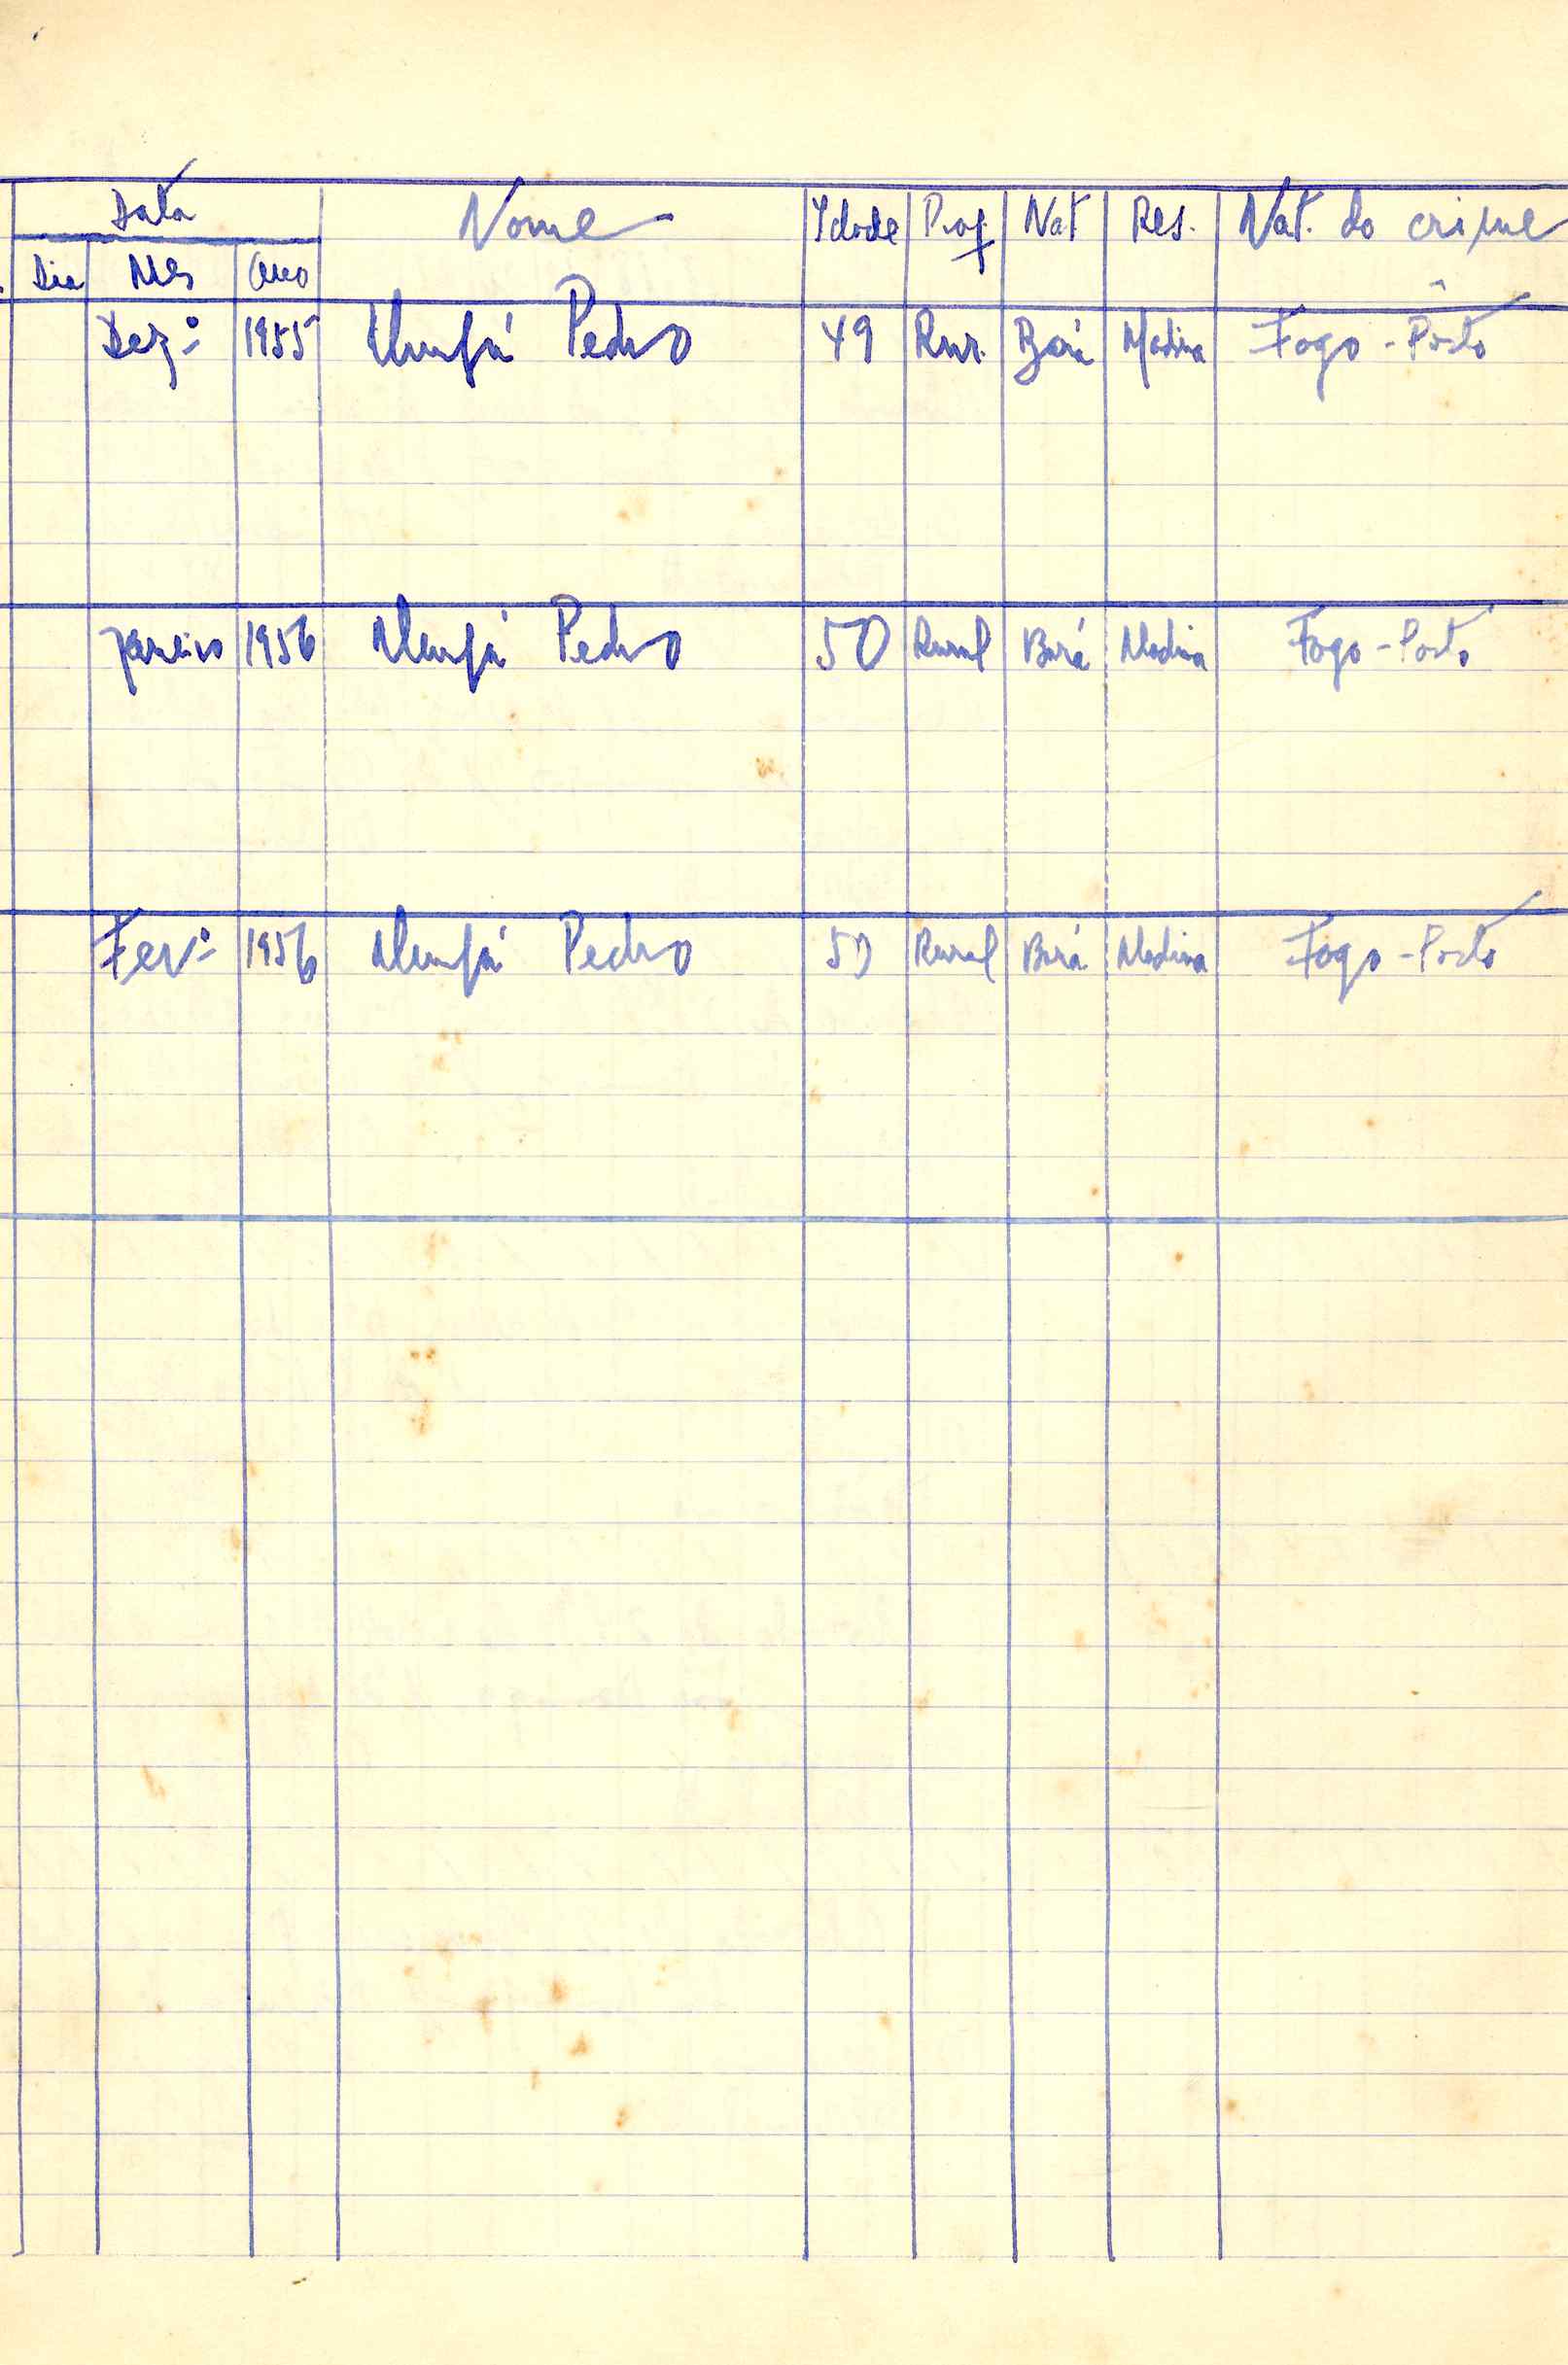 Data Nome Idade Prof Nat Res. Nat. do crime
Dia Mês Ano
Dezº 1955 Pedro 49 Rur. Medina Fogo-Pôsto
Janeiro 1956 Pedro 50 Rural Bará Medina Fogo-Posto
Fevº 1956 Pedro 50 Rural Bará Medina Fogo-Posto